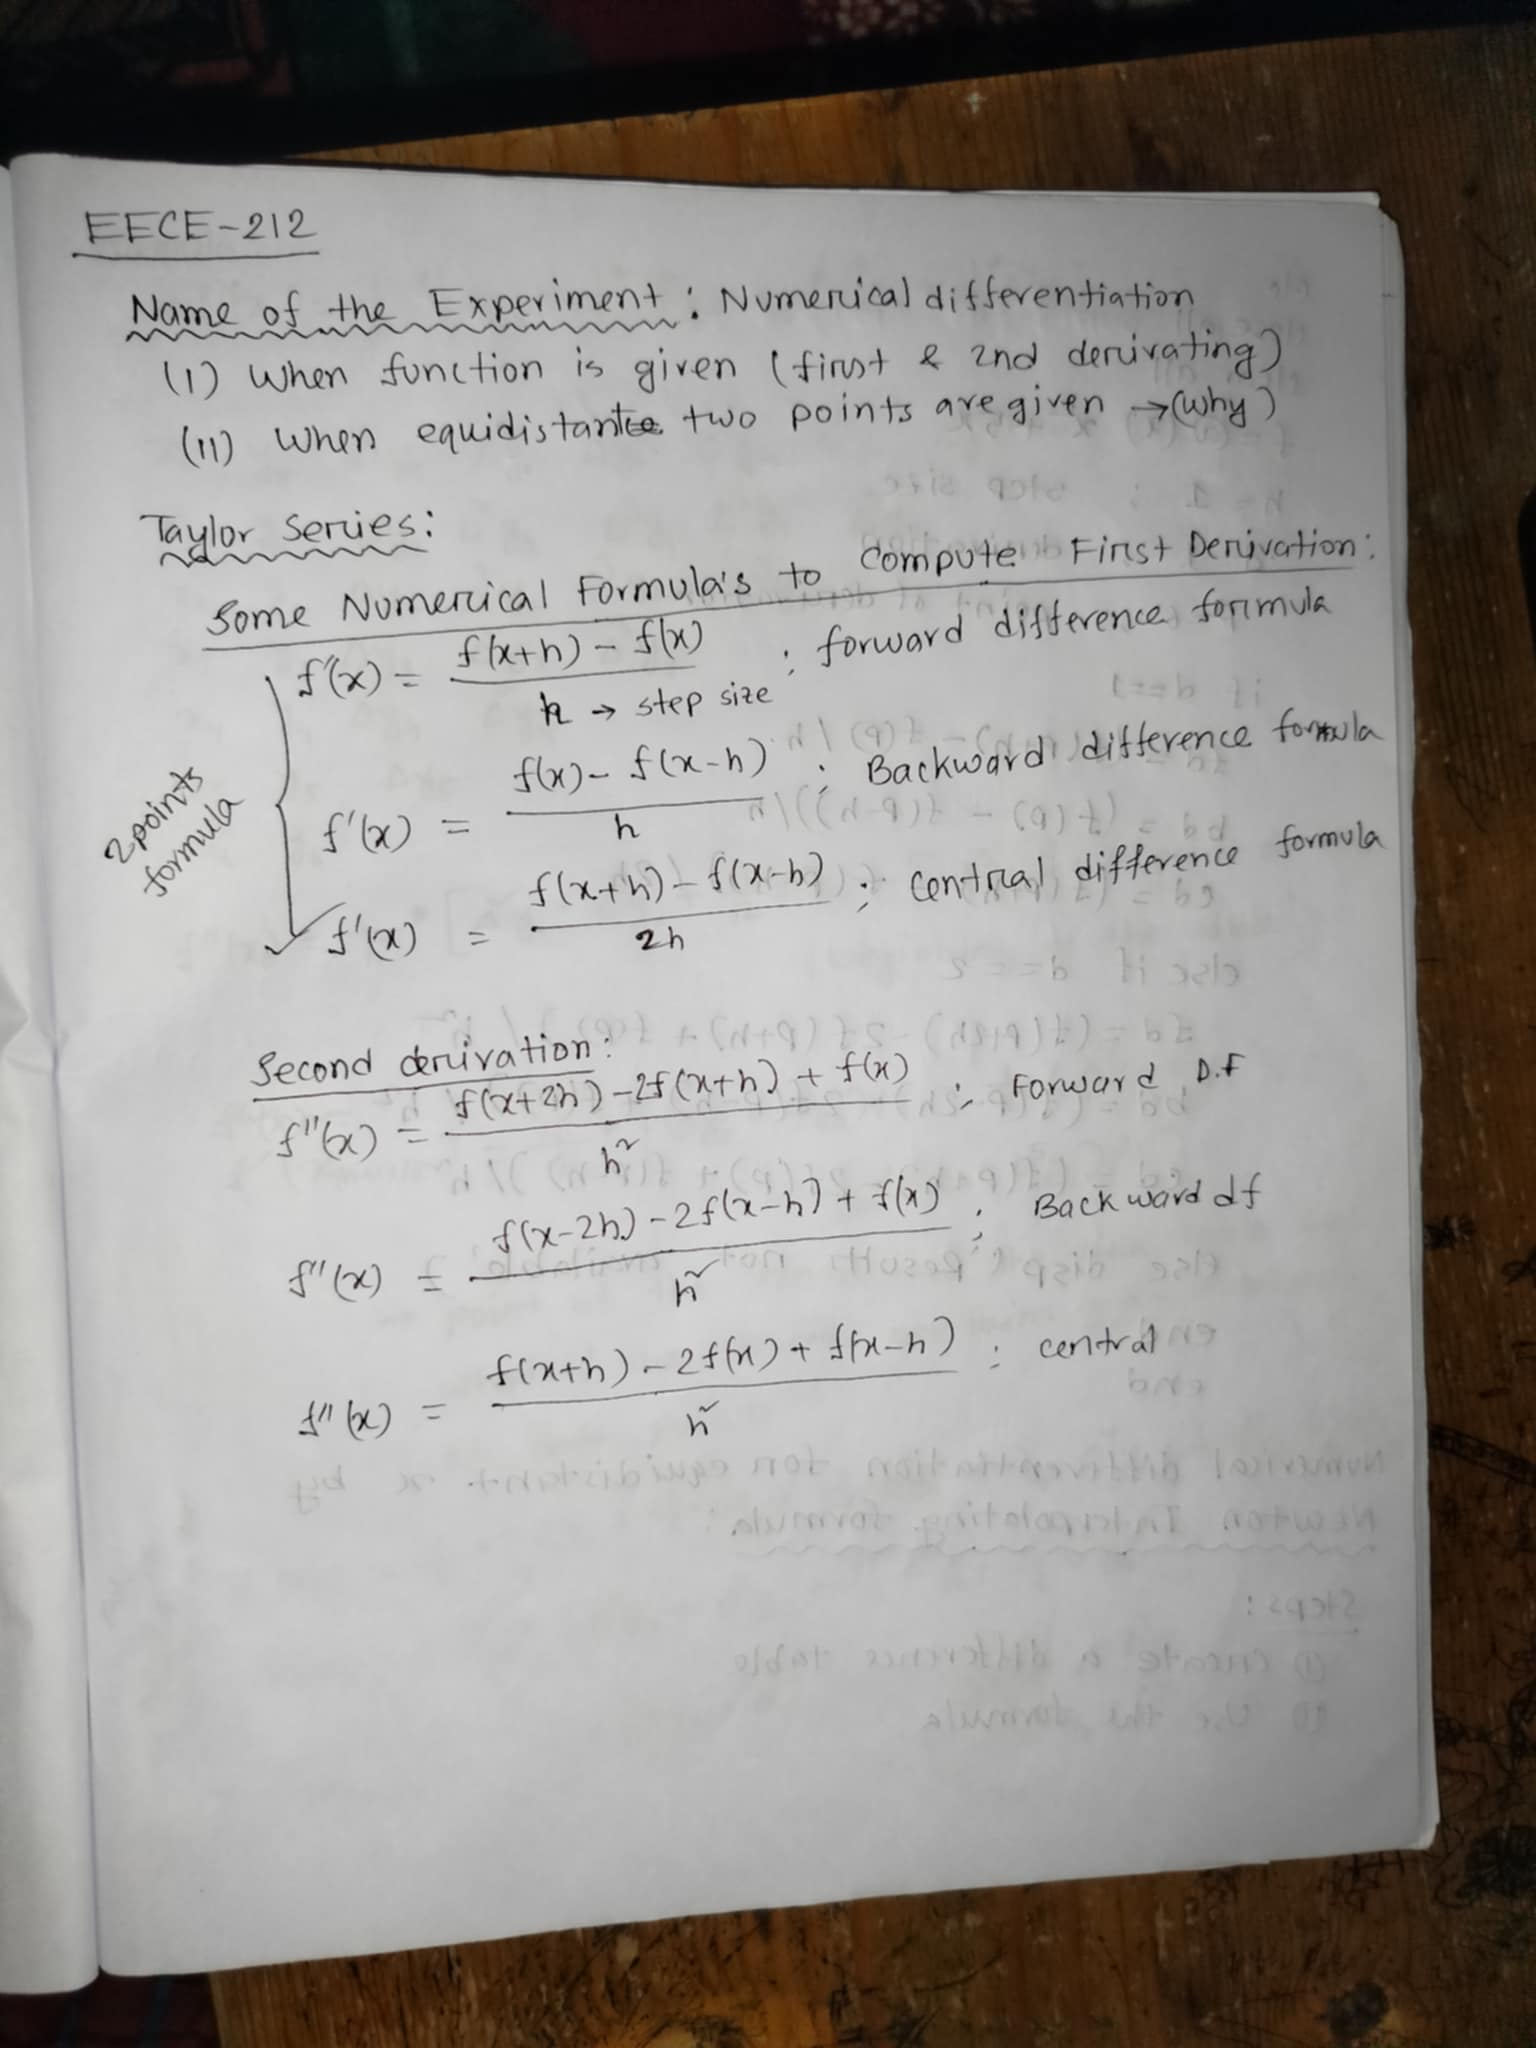 EECE-212
Name of the Experiment : Numerical differentiation
(I) When function is given (first & 2nd derivating)
(II) When equidistant two points are given → (why)
Taylor Series:
Some Numerical Formula's to Compute First Derivation:
f'(x) = f(x+h) - f(x) / h → step size ; forward difference formula
f'(x) = f(x) - f(x-h) / h ; Backward difference formula
2 points formula
f'(x) = f(x+h) - f(x-h) / 2h ; central difference formula
Second derivation:
f''(x) = f(x+2h) - 2f(x+h) + f(x) / h² ; Forward D.F
f''(x) = f(x-2h) - 2f(x-h) + f(x) / h² ; Backward df
f''(x) = f(x+h) - 2f(x) + f(x-h) / h² ; central